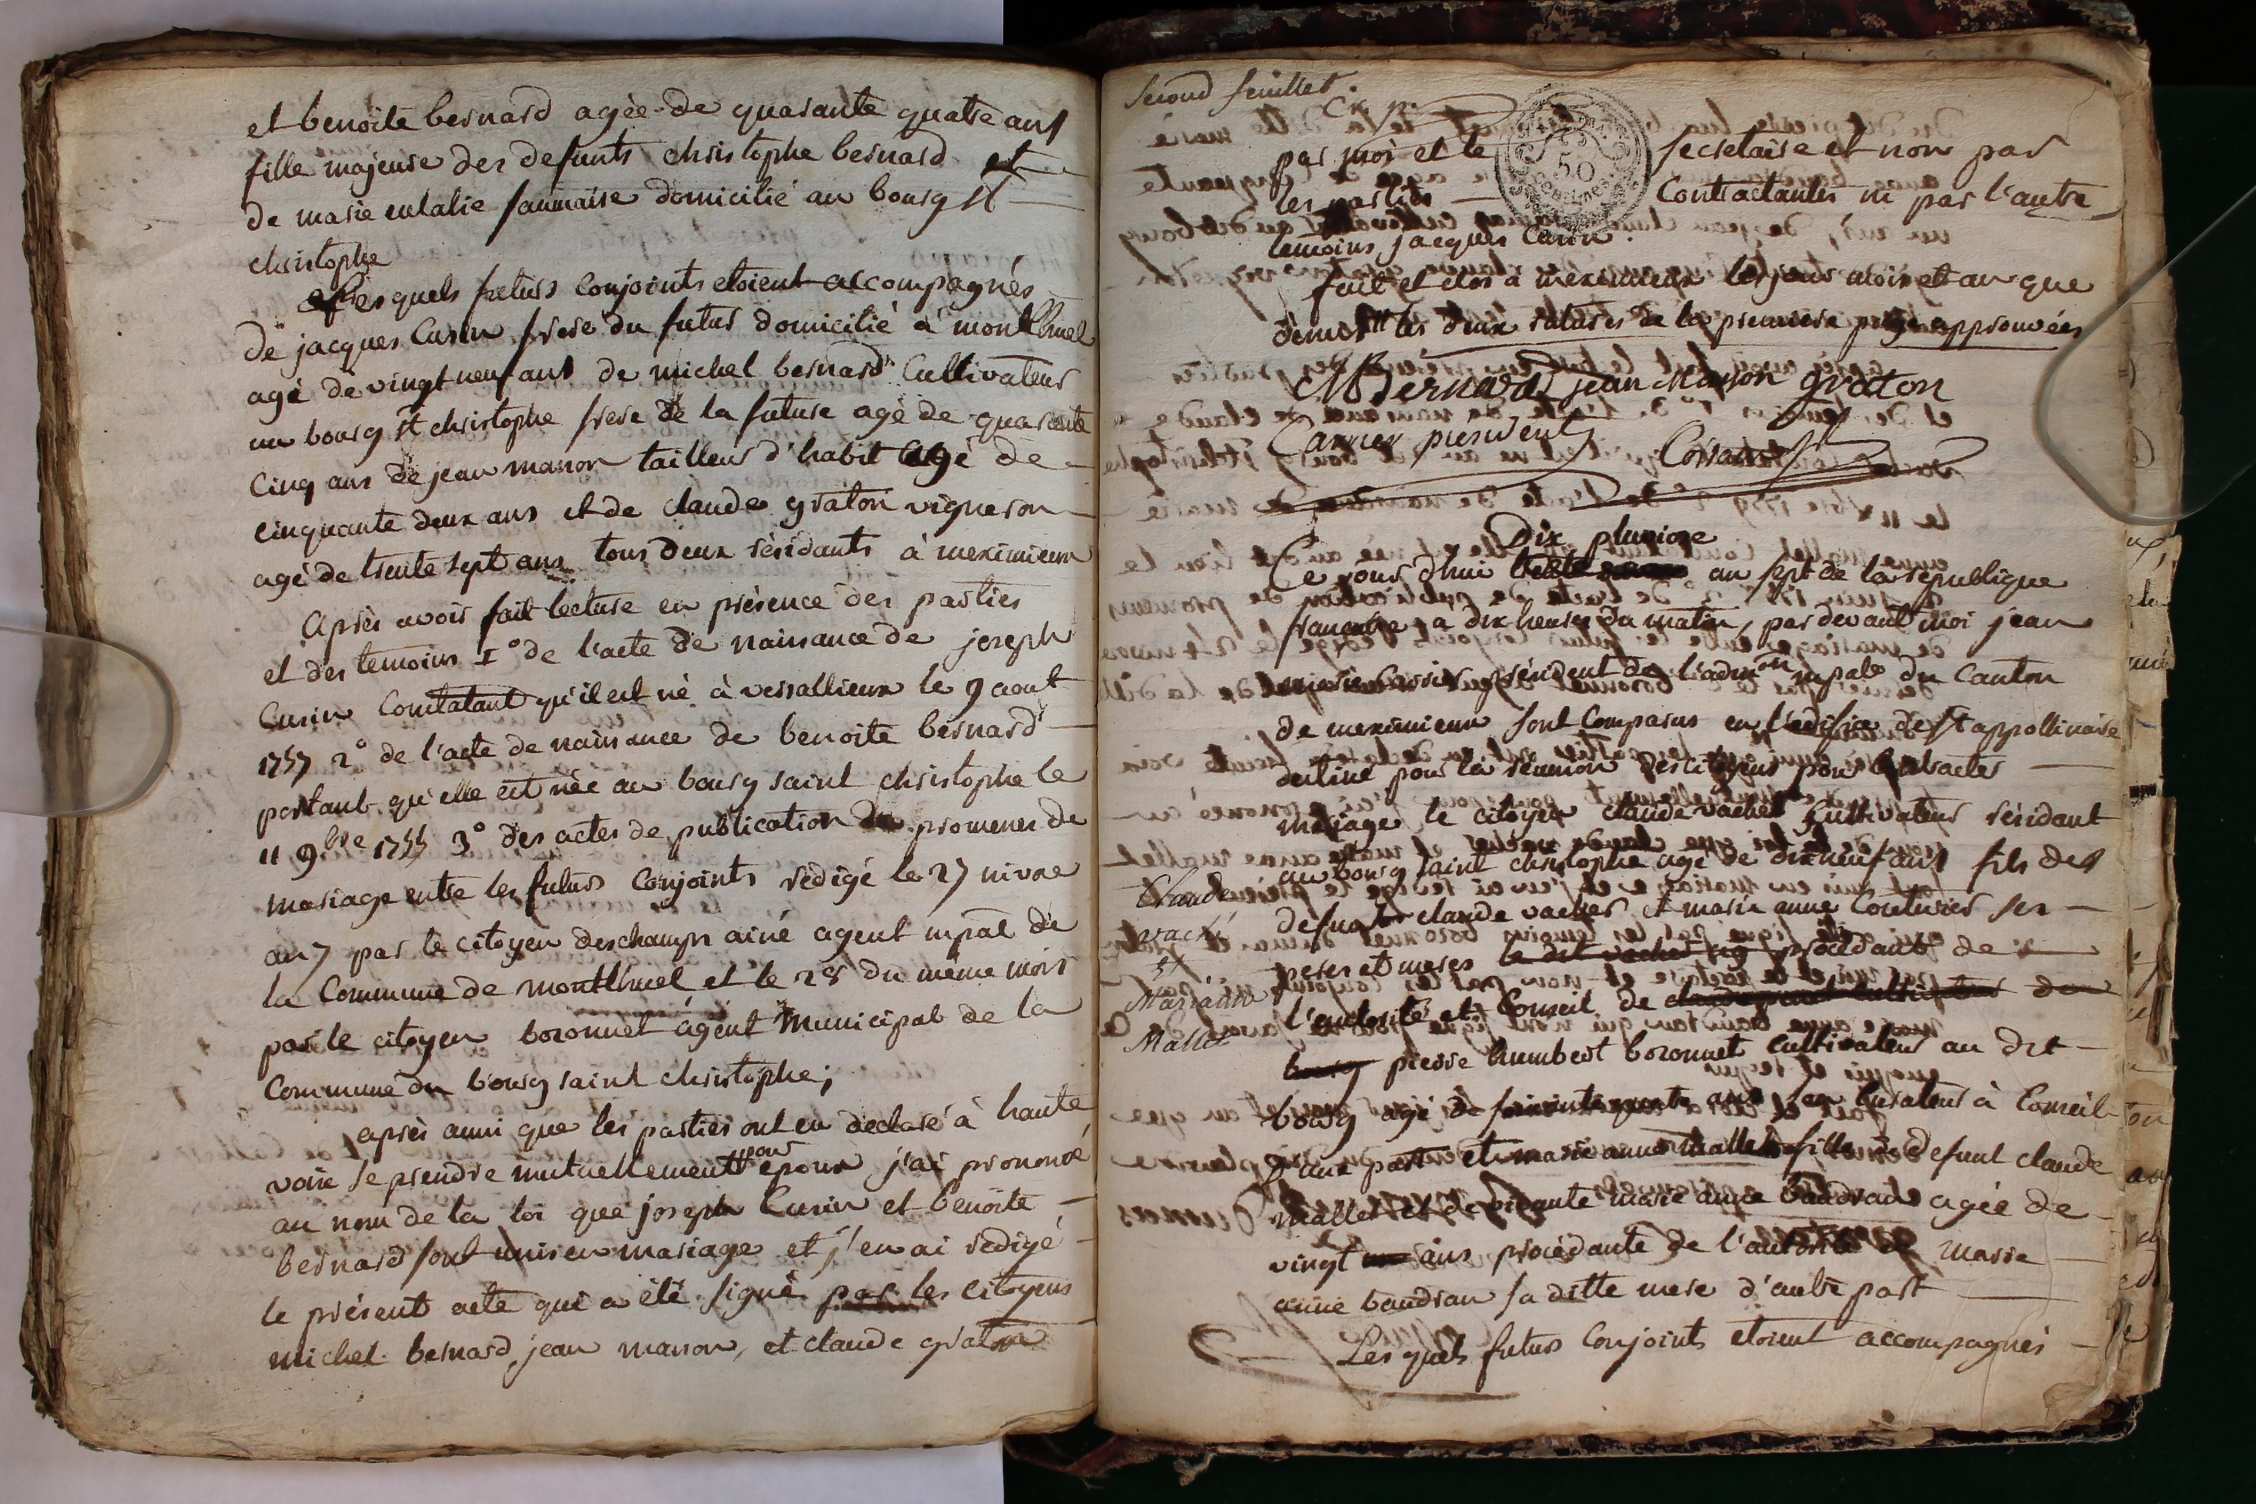 et benoite bernard agèe de quarante quatre ans
fille majeure des defunts christophe bernard et
de marie eulalie saumaise domicilié au bourg st
christophe
Lesquels futurs conjoints etoient accompagnés
de jacques Curin frere du futur domicilié à montluel
agé de vingt neuf ans de michel bernard Cultivateur
au bourg st christophe frere de la future agé de quarante
cinq ans de jean manon tailleur d'habit agé de
cinquante deux ans et de claude graton vigneron
agé de trente sept ans tous deux résidants à meximieux
Après avoir fait lecture en présence des parties
et des temoins 1° de l'acte de naissance de joseph
Curin Constatant qu'il est né à versallieux le 9 aout
1757 2° de l'acte de naissance de benoite bernard
portant qu'elle est née au bourg saint christophe le
11 9bre 1755 3° des actes de publication de promesses de
mariage entre les futurs Conjoints rédigé le 27 nivose
an 7 par le citoyen deschamps ainé agent mpal de
la Commune de montluel et le 28 du même mois
par le citoyen boronnet agent Municipal de la
Commune du bourg saint christophe;
après aussi que les parties ont eu déclaré à haute
voix se prendre mutuellement pour epoux j'ai prononcé
au nom de la loi que joseph Curin et benoite
bernard sont unis en mariage et j'en ai rédigé
le présent acte qui a été signé par les citoyens
michel bernard, jean manon, et claude graton
Second feuillet.
par moi et le secretaire et non par
les parties Contractantes ni par l'autre
temoins jacques Curin.
fait et clos à meximieux les jour mois et an que
dernier les deux ratures de la premiere page approuvées
MBernard jean Manon graton
Carrier president
50
Dix pluviose
Ce jour d'hui an sept de la république
francaise à dix heures du matin, par devant moi jean
marie Carrier président de l'admon mpale du Canton
de meximieux sont Comparus en l'edifice de st appollinaire
destiné pour la réunion des citoyens pour les actes
mariage le citoyen claude vacher Cultivateur résidant
au bourg saint christophe agé de dix neuf ans fils des
défunts claude vacher et marie anne Couturier ses
peres et meres le dit vacher procédant de
l'authorité et Conseil de
bourg pierre humbert boronnet cultivateur au dit
bourg agé de ans son Curateur à Conseil
d'une part et marie anne mallet fille de defunt claude
mallet et de vivante marie anne baudran agée de
vingt ans procédante de l'autorité de marie
anne baudran sa ditte mere d'autre part
Lesquels futurs Conjoints etoient accompagnés
Claude
vaché
et
Mariann
Mallet